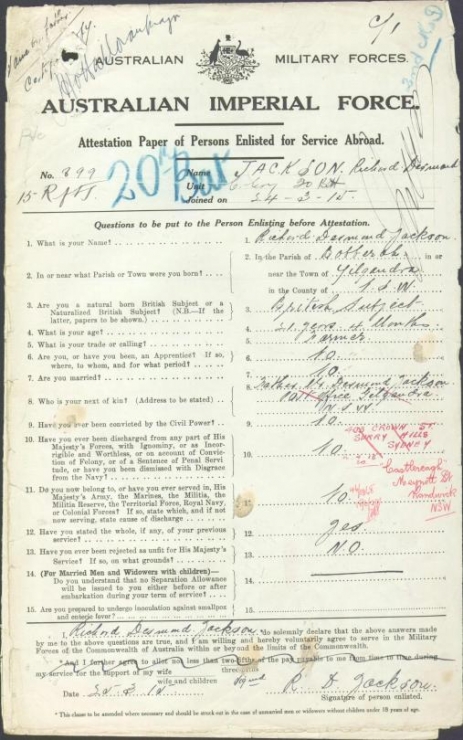 AUSTRALIAN MILITARY FORCES.
AUSTRALIAN IMPERIAL FORCE.
Attestation Paper of Persons Enlisted for Service Abroad.
No. 899 Name JACKSON. Richard Desmond
20th Batt Unit
Joined on 24-3-15
Questions to be put to the Person Enlisting before Attestation.
1. What is your Name? 1. Richard Desmond Jackson.
2. In or near what Parish or Town were you born? 2. In the Parish of in or
near the Town of Gilgandra
in the County of N.S.W
3. Are you a natural born British Subject or a Naturalized British Subject? (N.B.—If the latter, papers to be shown.) 3. British Subject
4. What is your age? 4. 21 years 4 Months
5. What is your trade or calling? 5. Farmer
6. Are you, or have you been, an Apprentice? If so, where, to whom, and for what period? 6. No.
7. Are you married? 7. No.
8. Who is your next of kin? (Address to be stated) 8. Father Desmond Jackson
Office Gilgandra
N.S.W
9. Have you ever been convicted by the Civil Power? 9. No.
CROWN ST.
SURRY HILLS
SYDNEY
10. Have you ever been discharged from any part of His Majesty's Forces, with Ignominy, or as Incorrigible and Worthless, or on account of Conviction of Felony, or of a Sentence of Penal Servitude, or have you been dismissed with Disgrace from the Navy? 10. No.
Castlereigh
St
Randwick
NSW
11. Do you now belong to, or have you ever served in, His Majesty's Army, the Marines, the Militia, the Militia Reserve, the Territorial Force, Royal Navy, or Colonial Forces? If so, state which, and if not now serving, state cause of discharge 11. No.
12. Have you stated the whole, if any, of your previous service? 12. Yes
13. Have you ever been rejected as unfit for His Majesty's Service? If so, on what grounds? 13. No.
14. (For Married Men and Widowers with children)—
Do you understand that no Separation Allowance will be issued to you either before or after embarkation during your term of service? 14.
15. Are you prepared to undergo inoculation against smallpox and enteric fever? 15.
I, Richard Desmond Jackson do solemnly declare that the above answers made
by me to the above questions are true, and I am willing and hereby voluntarily agree to serve in the Military
Forces of the Commonwealth of Australia within or beyond the limits of the Commonwealth.
*And I further agree to allot not less than two-fifths of the pay payable to me from time to time during
my service for the support of my wife
wife and children
Date 25-3-15 Signed R. D. Jackson.
Signature of person enlisted.
* This clause to be amended where necessary and should be struck out in the case of unmarried men or widowers without children under 18 years of age.